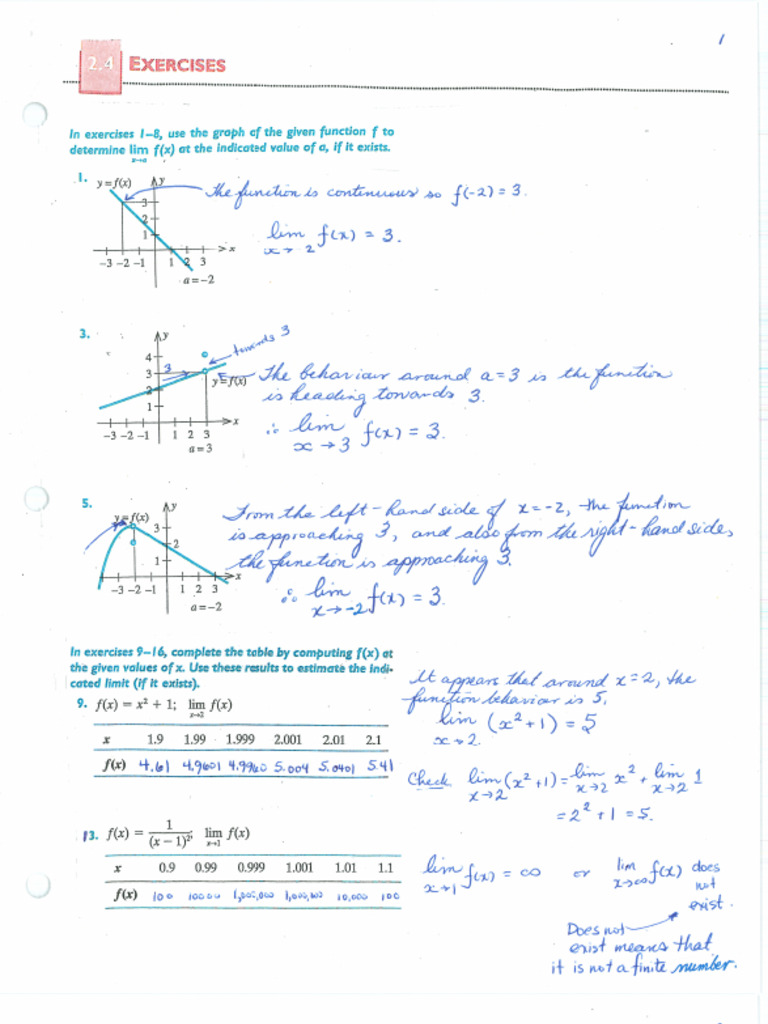 1
2.4 EXERCISES
In exercises 1–8, use the graph of the given function f to
determine lim f(x) at the indicated value of a, if it exists.
x→a
1.
y = f(x)
y
The function is continuous so f(-2) = 3.
3
2
1
x
-3 -2 -1 1 2 3
a = -2
lim f(x) = 3.
x → 2
3.
y
towards 3
4
3
3
2
1
y = f(x)
x
-3 -2 -1 1 2 3
a = 3
The behaviour around a = 3 is the function
is heading towards 3.
∴ lim f(x) = 3.
x → 3
5.
y = f(x)
y
3
2
1
x
-3 -2 -1 1 2 3
a = -2
From the left-hand side of x = -2, the function
is approaching 3, and also from the right-hand side,
the function is approaching 3.
∴ lim f(x) = 3.
x → -2
In exercises 9–16, complete the table by computing f(x) at
the given values of x. Use these results to estimate the indi-
cated limit (if it exists).
9. f(x) = x² + 1; lim f(x)
x→2
x 1.9 1.99 1.999 2.001 2.01 2.1
f(x) 4.61 4.9601 4.9960 5.004 5.0401 5.41
It appears that around x = 2, the
function behavior is 5.
lim (x² + 1) = 5
x → 2
Check lim (x² + 1) = lim x² + lim 1
x → 2 x → 2 x → 2
= 2² + 1 = 5.
13. f(x) = 1/(x − 1)²; lim f(x)
x→1
x 0.9 0.99 0.999 1.001 1.01 1.1
f(x) 100 10000 1,000,000 1,000,000 10,000 100
lim f(x) = ∞ or lim f(x) does
x → 1 x → ∞ not
exist.
Does not
exist means that
it is not a finite number.